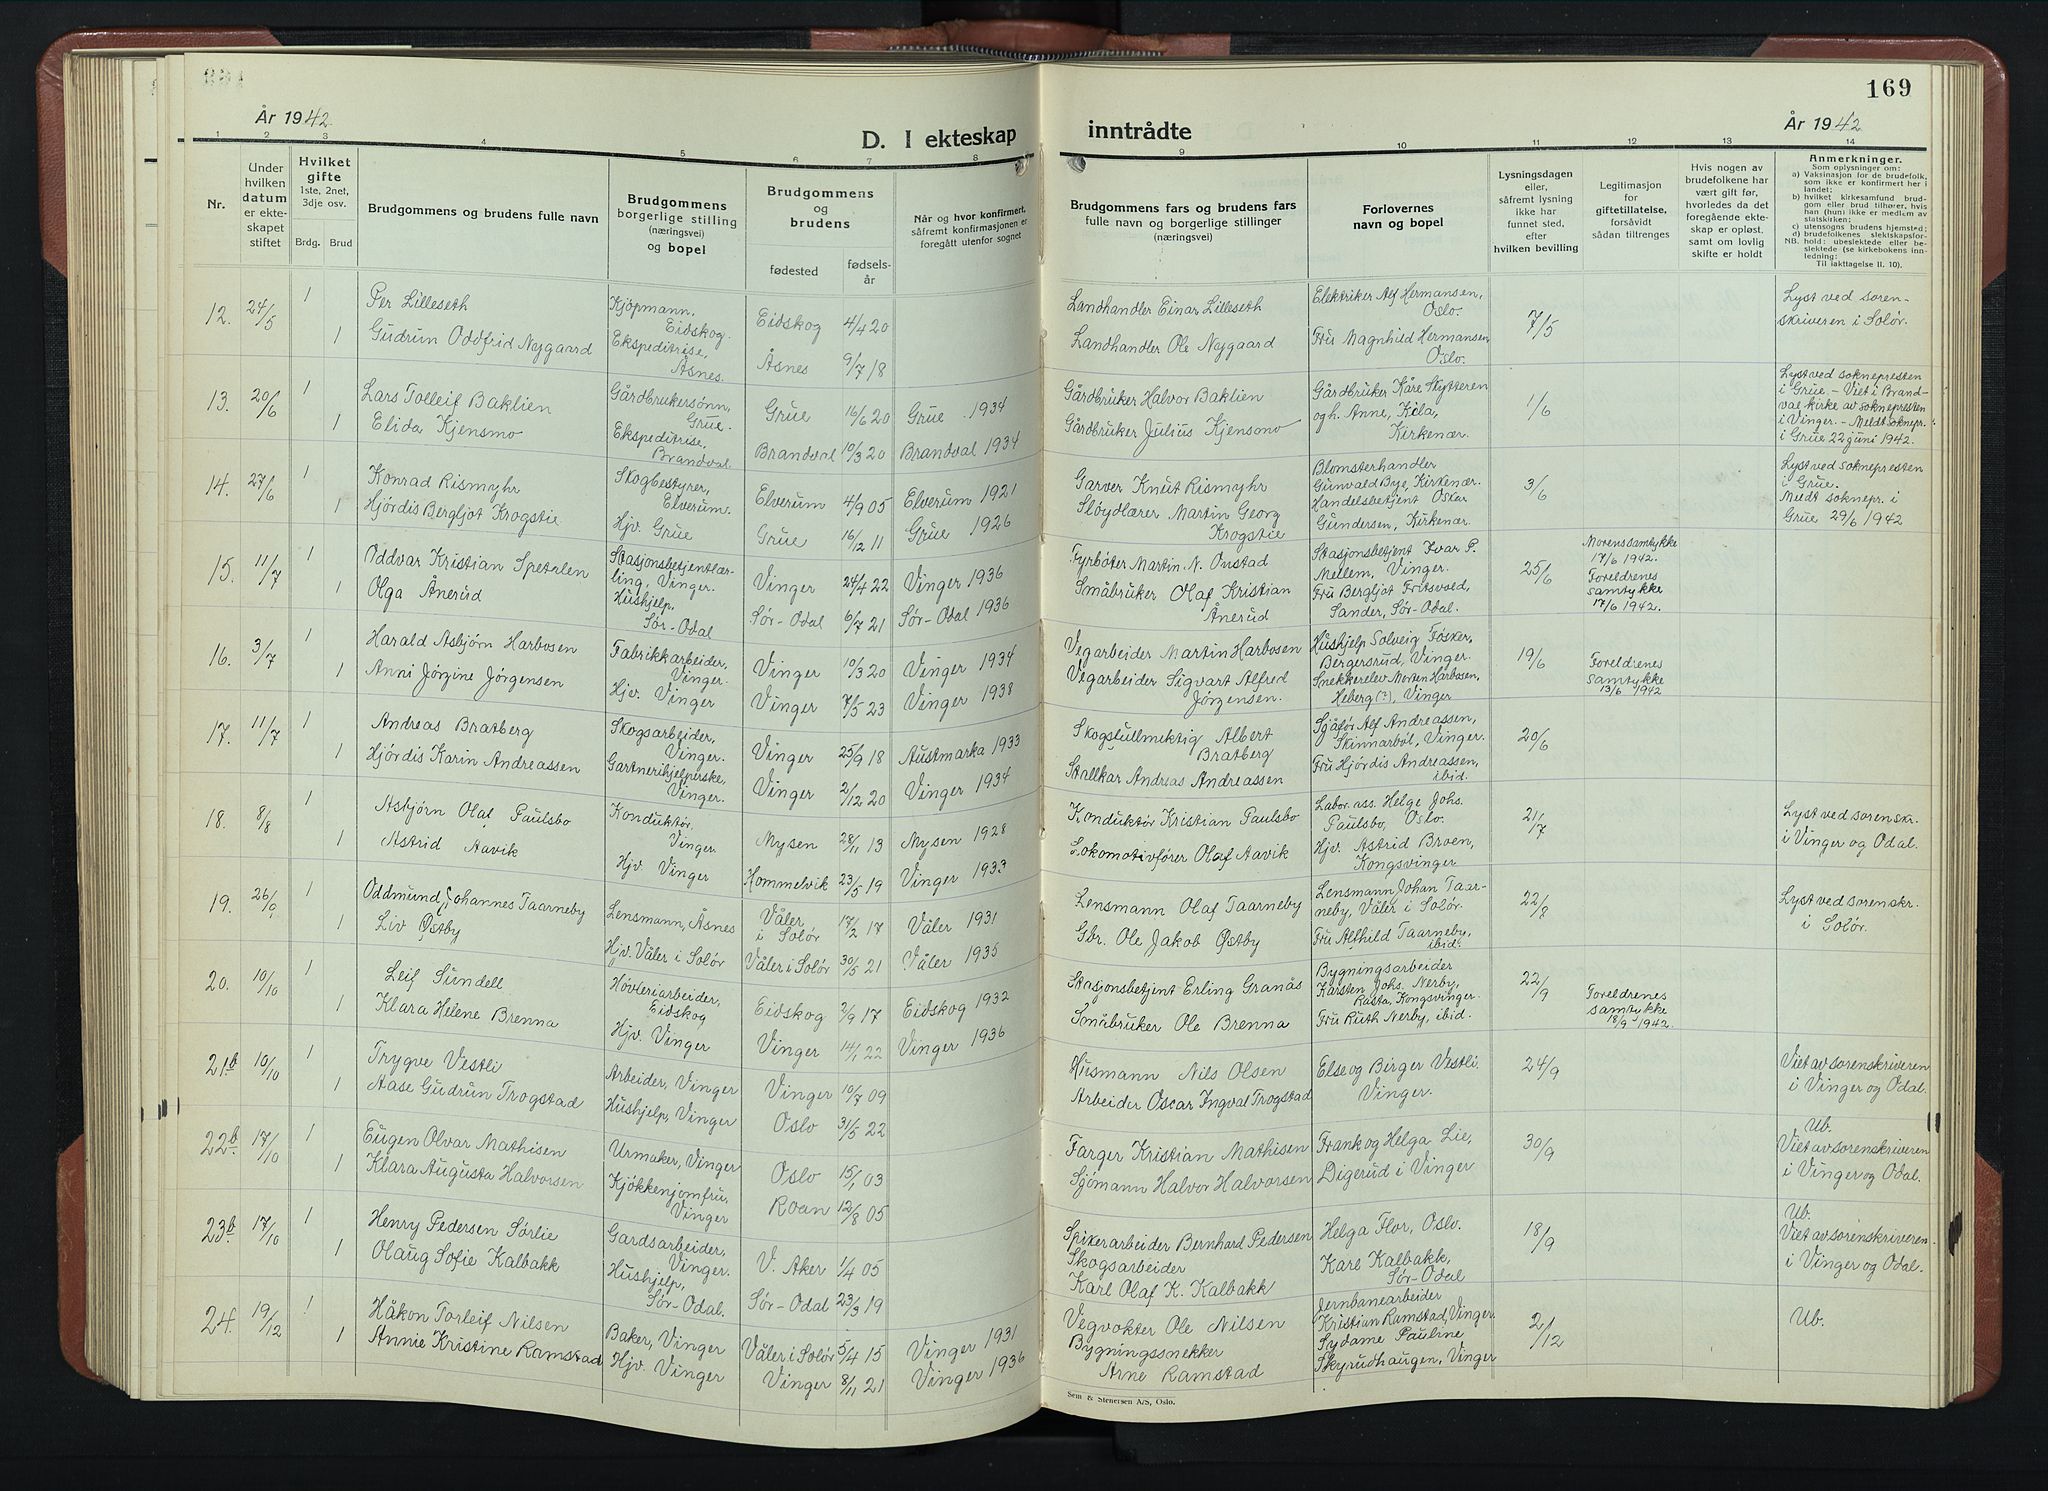 169
År 1942
D. I ekteskap inntrådte
År 1942
1 2 3 4 5 6 7 8 9 10 11 12 13 14
Nr.
Under hvilken datum er ekteskapet stiftet
Hvilket gifte
1ste, 2net, 3dje osv.
Brdg. Brud
Brudgommens og brudens fulle navn
Brudgommens borgerlige stilling (næringsvei) og bopel
Brudgommens og brudens
fødested
fødselsår
Når og hvor konfirmert, såfremt konfirmasjonen er foregått utenfor sognet
Brudgommens fars og brudens fars fulle navn og borgerlige stillinger (næringsvei)
Forlovernes navn og bopel
Lysningsdagen eller, såfremt lysning ikke har funnet sted, efter hvilken bevilling
Legitimasjon for giftetillatelse, forsåvidt sådan tiltrenges
Hvis nogen av brudefolkene har vært gift før, hvorledes da det foregående ekteskap er opløst, samt om lovlig skifte er holdt
Anmerkninger.
Som oplysninger om:
a) Vaksinasjon for de brudefolk, som ikke er konfirmert her i landet;
b) hvilket kirkesamfund brudgom eller brud tilhører, hvis han (hun) ikke er medlem av statskirken;
c) utensogns brudens hjemsted;
d) brudefolkenes slektskapsforhold: ubeslektede eller beslektede (se kirkebokens innledning:
NB.
Til iakttagelse II. 10).
12. 24/5 1 Per Lilleseth Kjøpmann, Eidskog. Eidskog 4/4 20 Landhandler Einar Lilleseth Elektriker Alf Hermansen, Oslo. 7/5 Lyst ved sorenskriveren i Solør.
1 Gudrun Oddfrid Nygaard Ekspeditrise, Åsnes. Åsnes 9/7 18 Landhandler Ole Nygaard Fru Magnhild Hermansen, Oslo.
13. 20/6 1 Lars Tolleif Baklien Gårdbrukersønn, Grue. Grue 16/6 20 Grue 1934 Gårdbruker Halvor Baklien Gårdbruker Kåre Skytteren og h. Anne, Kila, Kirkenær. 1/6 Lyst ved soknepresten i Grue. - Viet i Brandval kirke av soknepresten i Vinger. - Meldt soknepr. i Grue 22 juni 1942.
1 Elida Kjensmo Ekspeditrise, Brandval. Brandval 10/3 20 Brandval 1934 Gårdbruker Julius Kjensmo
14. 27/6 1 Konrad Rismyhr Skogbestyrer, Elverum. Elverum 4/9 05 Elverum 1921 Garver Knut Rismyhr Blomsterhandler Gunvald Bye, Kirkenær. 3/6 Lyst ved soknepresten i Grue. Meldt soknepr. i Grue 29/6 1942
1 Hjørdis Bergljot Krogstie Hjv. Grue Grue 16/12 11 Grue 1926 Sløydlærer Martin Georg Krogstie Handelsbetjent Oskar Gundersen, Kirkenær.
15. 11/7 1 Oddvar Kristian Spetalen Stasjonsbetjentlærling, Vinger. Vinger 24/4 22 Vinger 1936 Fyrbøter Martin N. Onstad Stasjonsbetjent Ivar P. Mellem, Vinger. 25/6 Morens samtykke 17/6 1942.
1 Olga Ånerud Hushjelp, Sør-Odal Sør-Odal 6/7 21 Sør-Odal 1936 Småbruker Olaf Kristian Ånerud Fru Bergljot Fritsvold, Sander, Sør-Odal. Foreldrenes samtykke 17/6 1942.
16. 3/7 1 Harald Asbjørn Harbosen Fabrikkarbeider, Vinger. Vinger 10/3 20 Vinger 1934 Vegarbeider Martin Harbosen Hushjelp Solveig Føsker, Bergersrud, Vinger. 19/6 Foreldrenes samtykke 13/6 1942
1 Anni Jørgine Jørgensen Hjv. Vinger Vinger 7/5 23 Vinger 1938 Vegarbeider Sigvart Alfred Jørgensen. Snekkerelev Morten Harbosen, Heberg (?), Vinger
17. 11/7 1 Andreas Bratberg Skogsarbeider, Vinger. Vinger 25/9 18 Austmarka 1933 Skogsfullmektig Albert Bratberg Sjåfør Alf Andreassen, Skinnarbøl, Vinger. 20/6
1 Hjørdis Karin Andreassen Gartnerihjelperske, Vinger. Vinger 2/12 20 Vinger 1934 Stallkar Andreas Andreassen Fru Hjørdis Andreassen, ibid.
18. 8/8 1 Asbjørn Olaf Paulsbo Konduktør, Vinger. Mysen 28/11 13 Mysen 1928 Konduktør Kristian Paulsbo Labor. ass. Helge Johs. Paulsbo, Oslo. 21/7 Lyst ved sorenskr. i Vinger og Odal.
1 Astrid Aavik Hjv. Vinger Hommelvik 23/5 19 Vinger 1933 Lokomotivfører Olaf Aavik Hjv. Astrid Broen, Kongsvinger
19. 26/9 1 Oddmund Johannes Taarneby Lensmann, Åsnes Våler i Solør 17/2 17 Våler 1931 Lensmann Olaf Taarneby Lensmann Johan Taarneby, Våler i Solør. 22/8 Lyst ved sorenskr. i Solør.
1 Liv Østby Hjv. Våler i Solør Våler i Solør 30/5 21 Våler 1935 Gbr. Ole Jakob Østby Fru Alfhild Taarneby, ibid.
20. 10/10 1 Leif Sundell Høvleriarbeider, Eidskog Eidskog 2/9 17 Eidskog 1932 Stasjonsbetjent Erling Granås Bygningsarbeider Karsten Johs. Nerby, Rasta, Kongsvinger. 22/9 Foreldrenes samtykke 18/9 1942.
1 Klara Helene Brenna Hjv. Vinger Vinger 14/1 22 Vinger 1936 Småbruker Ole Brenna Fru Ruth Nerby, ibid.
21b 10/10 1 Trygve Vestli Arbeider, Vinger Vinger 10/7 09 Husmann Nils Olsen Else og Birger Vestli. Vinger. 24/9 Viet av sorenskriveren i Vinger og Odal.
1 Aase Gudrun Trogstad Hushjelp, Vinger Oslo 31/5 22 Arbeider Oscar Ingval Trogstad
22b 17/10 1 Eugen Olvar Mathisen Urmaker, Vinger Oslo 15/1 03 Farger Kristian Mathisen Frank og Helga Lie, Digerud i Vinger 30/9 Ub. Viet av sorenskriveren i Vinger og Odal.
1 Klara Augusta Halvorsen Kjøkkenjomfru, Vinger Roan 12/8 05 Sjømann Halvor Halvorsen
23b 17/10 1 Henry Pedersen Sørlie Gardsarbeider, Vinger. V. Aker 1/4 05 Spikerarbeider Bernhard Pedersen Helga Flor, Oslo. 18/9 Ub. Viet av sorenskriveren i Vinger og Odal.
1 Olaug Sofie Kalbakk Hushjelp, Sør-Odal. Sør-Odal 23/3 19 Skogsarbeider Karl Olaf K. Kalbakk Kare Kalbakk, Sør-Odal
24. 19/12 1 Håkon Torleif Nilsen Baker, Vinger Våler i Solør 5/4 15 Vinger 1931 Vegvokter Ole Nilsen Jernbanearbeider Kristian Ramstad, Vinger. 2/12 Ub.
1 Annie Kristine Ramstad Hjv. Vinger Vinger 8/11 21 Vinger 1936 Bygningssnekker Arne Ramstad Sydame Pauline Skyrudhaugen, Vinger
Sem & Stenersen A/S, Oslo.